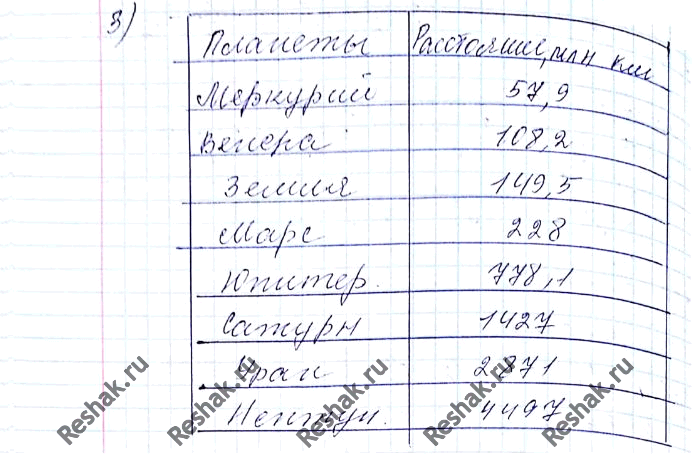 3)
Планеты Расстояние, млн км
Меркурий 57,9
Венера 108,2
Земля 149,5
Марс 228
Юпитер. 778,1
Сатурн 1427
Уран 2871
Нептун. 4497
Reshak.ru Reshak.ru Reshak.ru Reshak.ru Reshak.ru